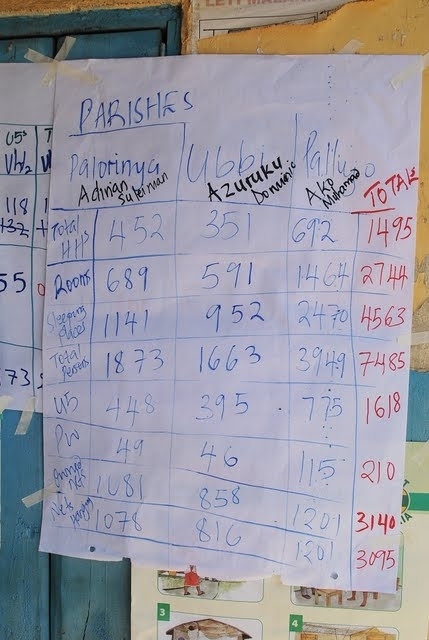 PARISHES
Palorinya Ubbi Palluјo TOTALS
Adrian Suleiman AZURUKU Dominic Ako Muhamad
Total HHs 452 351 692 1495
Rooms 689 591 1464 2744
Sleeping Places 1141 952 2470 4563
Total Persons 1873 1663 3949 7485
U5 448 395 775 1618
PW 49 46 115 210
1081 858 1201 3140
Nets Hanging 1078 816 1201 3095
U5s
118
+32
55
73
3
4